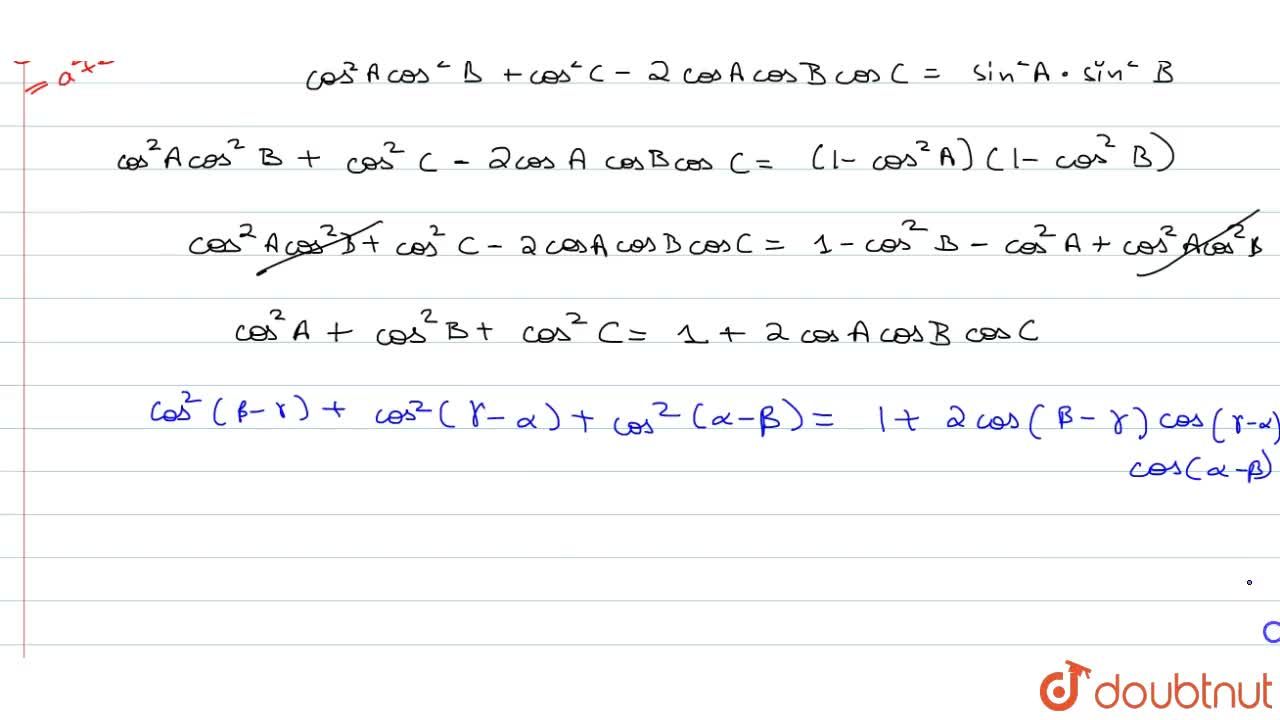 = a²+
cos²A cos²B + cos²C - 2 cosA cosB cosC = sin²A · sin²B
cos²A cos²B + cos²C - 2cosA cosB cosC = (1- cos²A)(1- cos²B)
cos²A cos²B + cos²C - 2cosA cosB cosC = 1 - cos²B - cos²A + cos²A cos²B
cos²A + cos²B + cos²C = 1 + 2 cosA cosB cosC
cos²(β-γ) + cos²(γ-α) + cos²(α-β) = 1 + 2 cos(β-γ) cos(γ-α)
cos(α-β)
doubtnut